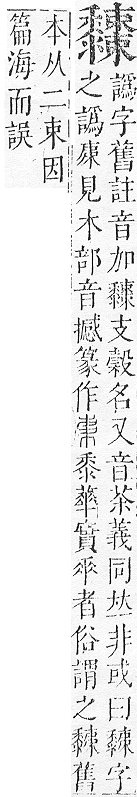 譌字舊註音加𪏻支穀名又音茶義同𠀤非或曰𪏻字
之譌𣐺見木部音撼篆作𣐺黍華實垂者俗謂之𪏻舊
本从二東因
篇海而誤